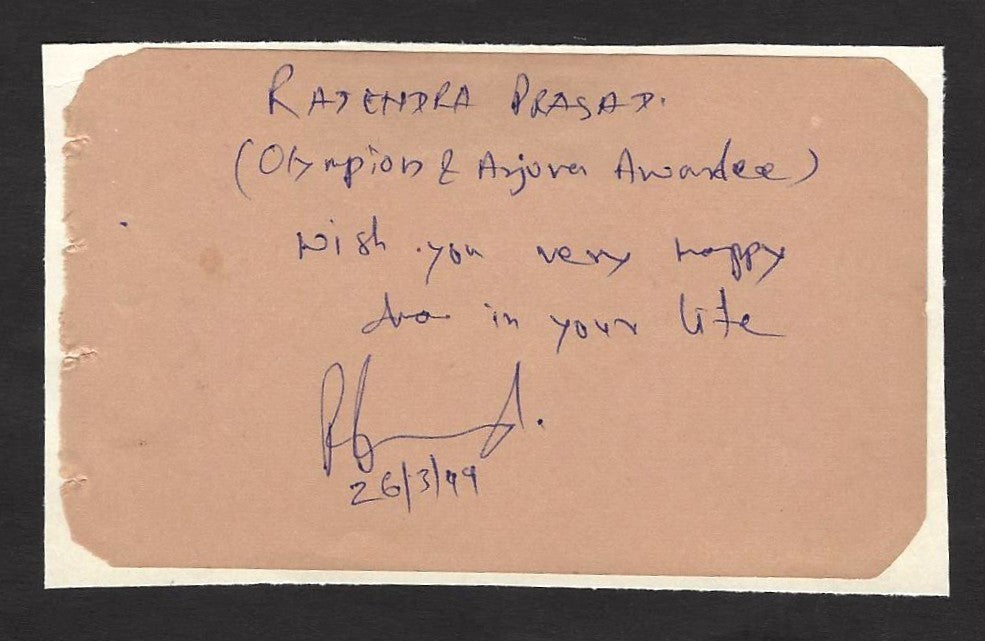 RAJENDRA PRASAD.
(Olympion & Arjuna Awardee)
wish you very happy
in your life
26/3/99